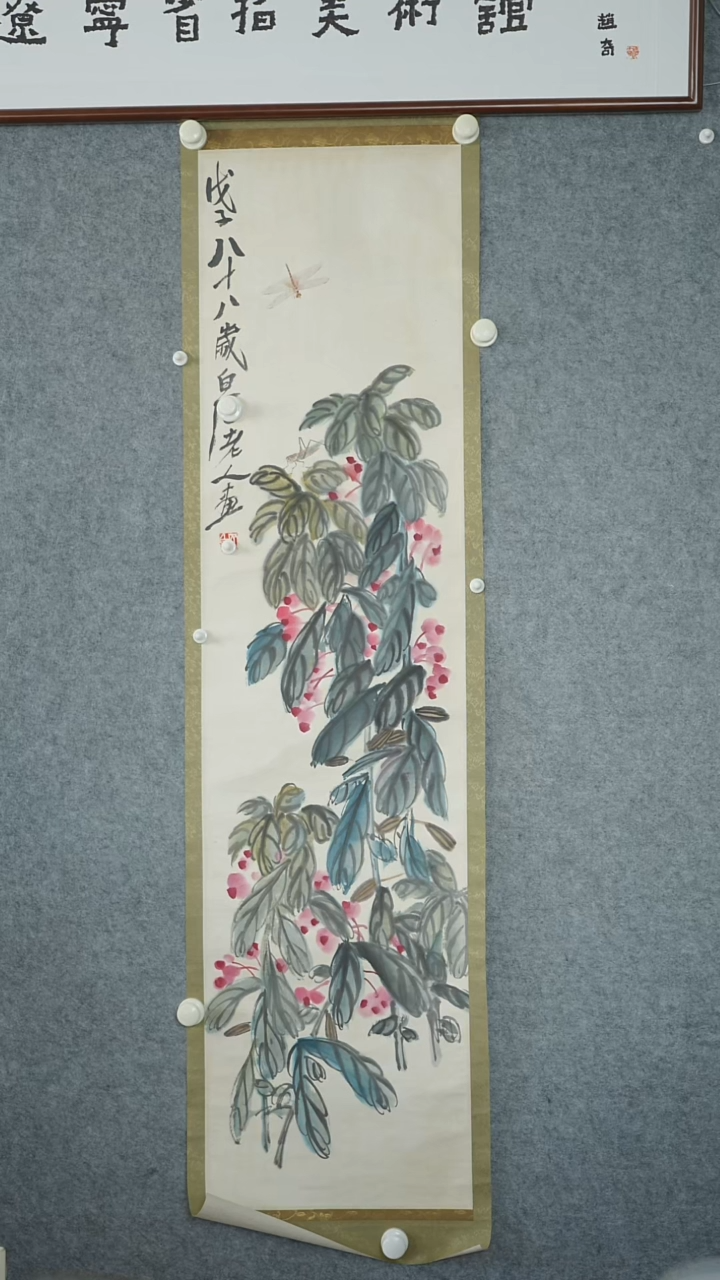 遼寧省指美術館
趙奇
戊子八十八歲白石老人畫